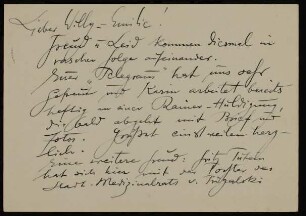 Lieber Willy – Emilie!
Freud u Leid kommen diesmal in
rascher Folge aufeinander.
Euer Telegramm hat uns sehr
gefreut und Karin arbeitet bereits
heftig an einer Rainer-Huldigung,
die bald abgeht mit Brief und
Fotos. einstweilen herz-
lich.
Eine weitere Freud: Fritz
hat sich hier mit der Tochter des
Stadt-Medizinalrats v.